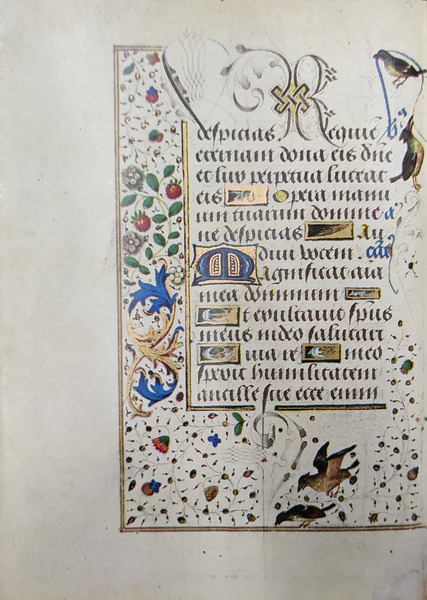 despicias. Requiē
eternam dona eis dn̄e
et lux perpetua luceat
eis Opera manu
um tuarum domine a͂
ne despicias Au
diui vocem. cāt
Magnificat aīa
mea dominum
Et exultauit spūs
meus in deo salutari
Quia re meo
spexit humilitatem
ancille sue ecce enim